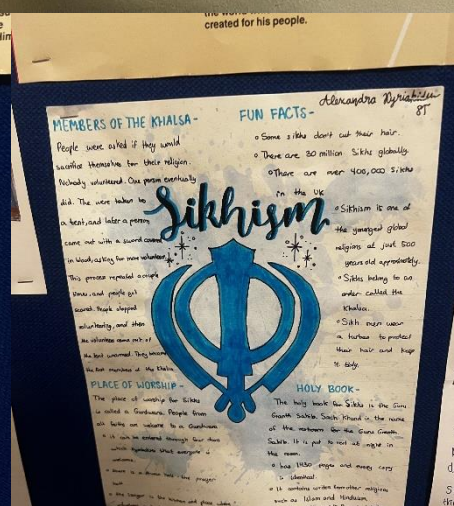 created for his people.
Alexandra
8T
MEMBERS OF THE KHALSA-
People were asked if they would
sacrifice themselves for their religion.
Nobody volunteered. One person eventually
did. The were taken to
a tent, and later a person
came out with a sword covered
in blood, asking for more volunteers.
This process repeated a couple
times, and people got
scared. People stopped
volunteering, and then
the volunteers came out of
the tent unarmed. They became
the first members of the Khalsa.
FUN FACTS-
Some sikhs don't cut their hair.
There are 30 million Sikhs globally.
There are over 400,000 Sikhs
in the UK
Sikhism is one of
the youngest global
religions at just 500
years old approximately.
Sikhs belong to an
order called the
Khalsa.
Sikh men wear
a turban to protect
their hair and keep
it tidy.
Sikhism
PLACE OF WORSHIP-
The place of worship for Sikhs
is called a Gurdwara. People from
all faiths are welcome to a Gurdwara
it can be entered through four doors
which symbolises that everyone is
welcome.
HOLY BOOK-
The holy book for Sikhs is the Guru
Granth Sahib. Sach Khand is the name
of the restroom for the Guru Granth
Sahib. It is put to rest at night in
the room.
has 1430 pages and every copy
is identical
It contains writing from other religions
such as Islam and Hinduism.